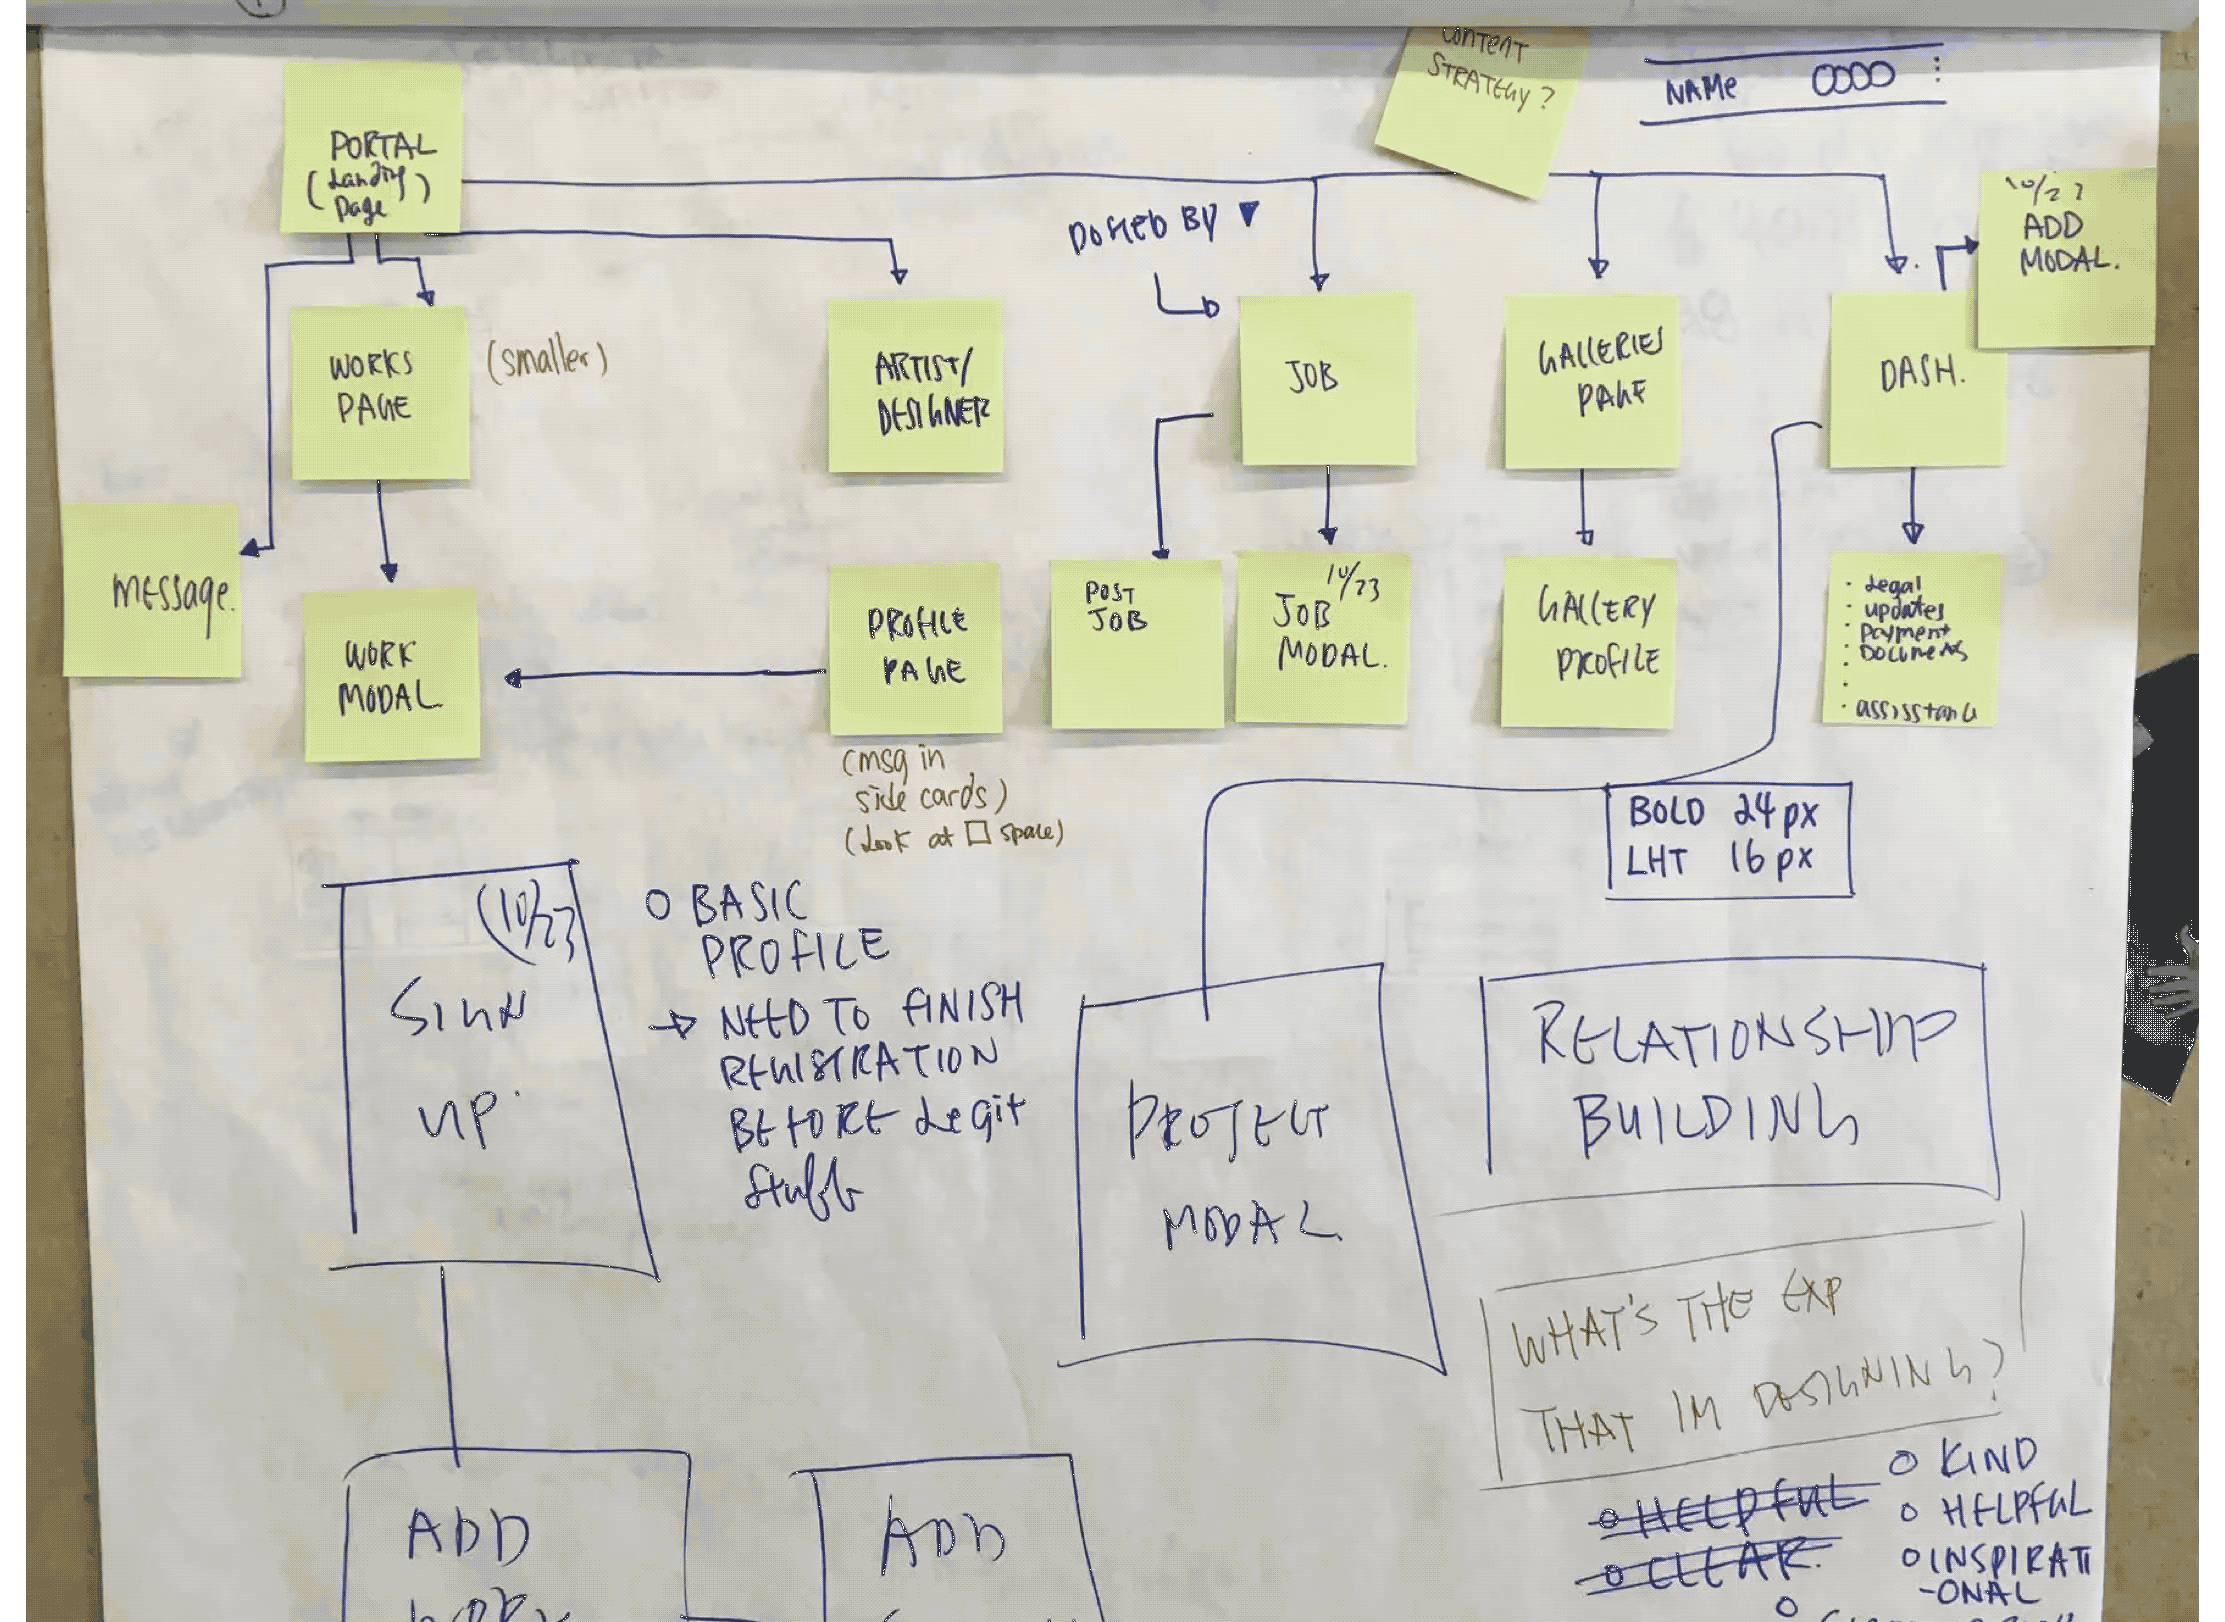 CONTENT
STRATEGY?
NAME
PORTAL
(Landing
Page)
POSTED BY
10/23
ADD
MODAL.
WORKS
PAGE
(smaller)
ARTIST/
DESIGNER
JOB
GALLERIES
PAGE
DASH.
MESSAGE.
WORK
MODAL
PROFILE
PAGE
(msg in
side cards)
(Look at □ space)
POST
JOB
10/23
JOB
MODAL.
GALLERY
PROFILE
· Legal
· updates
· Payment
· Documents
·
·
· assisstance
BOLD 24px
LHT 16px
(10/23
SIGN
UP.
○ BASIC
PROFILE
→ NEED TO FINISH
REGISTRATION
BEFORE Legit
Stuff
PROJECT
MODAL
RELATIONSHIP
BUILDING
WHAT'S THE EXP
THAT IM DESIGNING?
○ HELPFUL
○ CLEAR.
○ KIND
○ HELPFUL
○ INSPIRATI
-ONAL
ADD
WORK
ADD